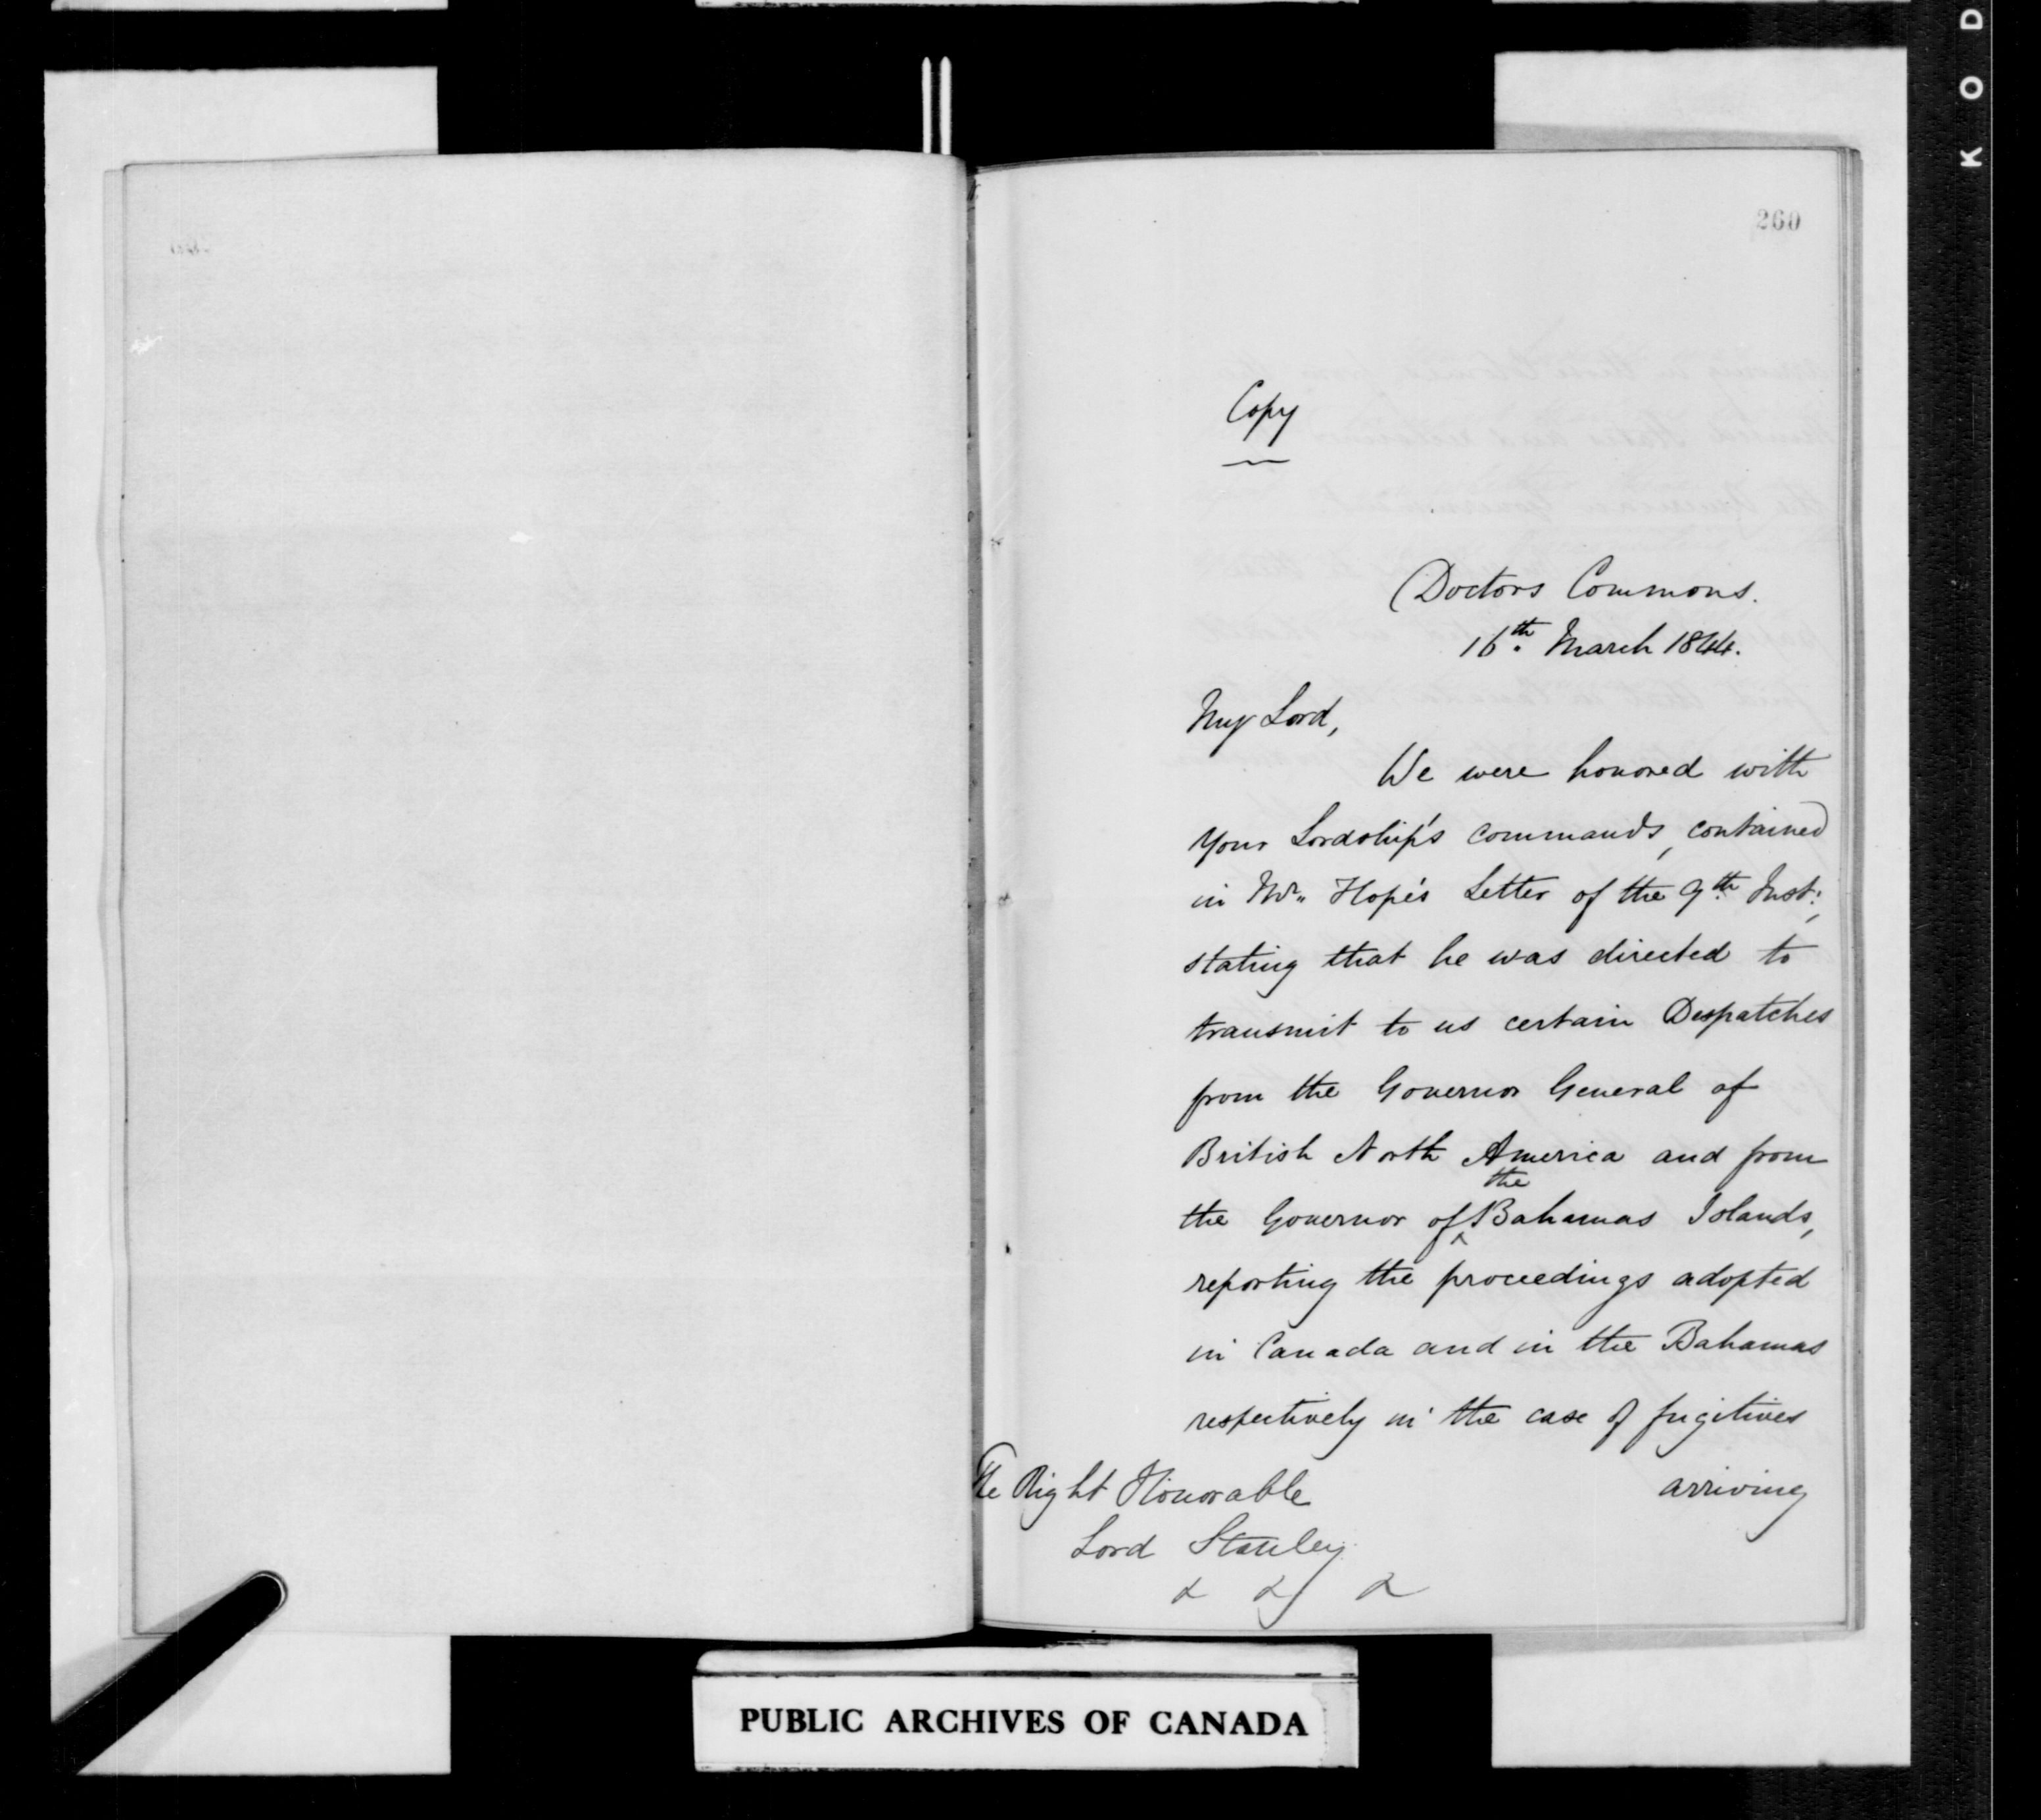 260
Copy
Doctors Commons.
16th. March 1844.
My Lord,
We were honored with
your Lordship's commands, contained
in Mr. Hope's Letter of the 9th. Inst:,
stating that he was directed to
transmit to us certain Despatches
from the Governor General of
British North America and from
the Governor of ^the Bahamas Islands,
reporting the proceedings adopted
in Canada and in the Bahamas
respectively in the case of fugitives
arriving
The Right Honorable
Lord Stanley
& & &
PUBLIC ARCHIVES OF CANADA
K O D